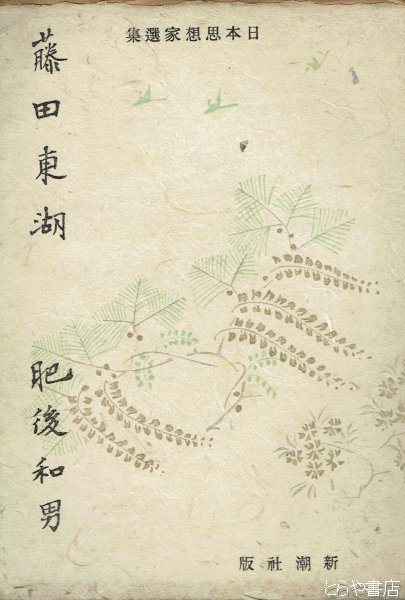 日本思想家選集
藤田東湖
肥後和男
新潮社版
とらや書店